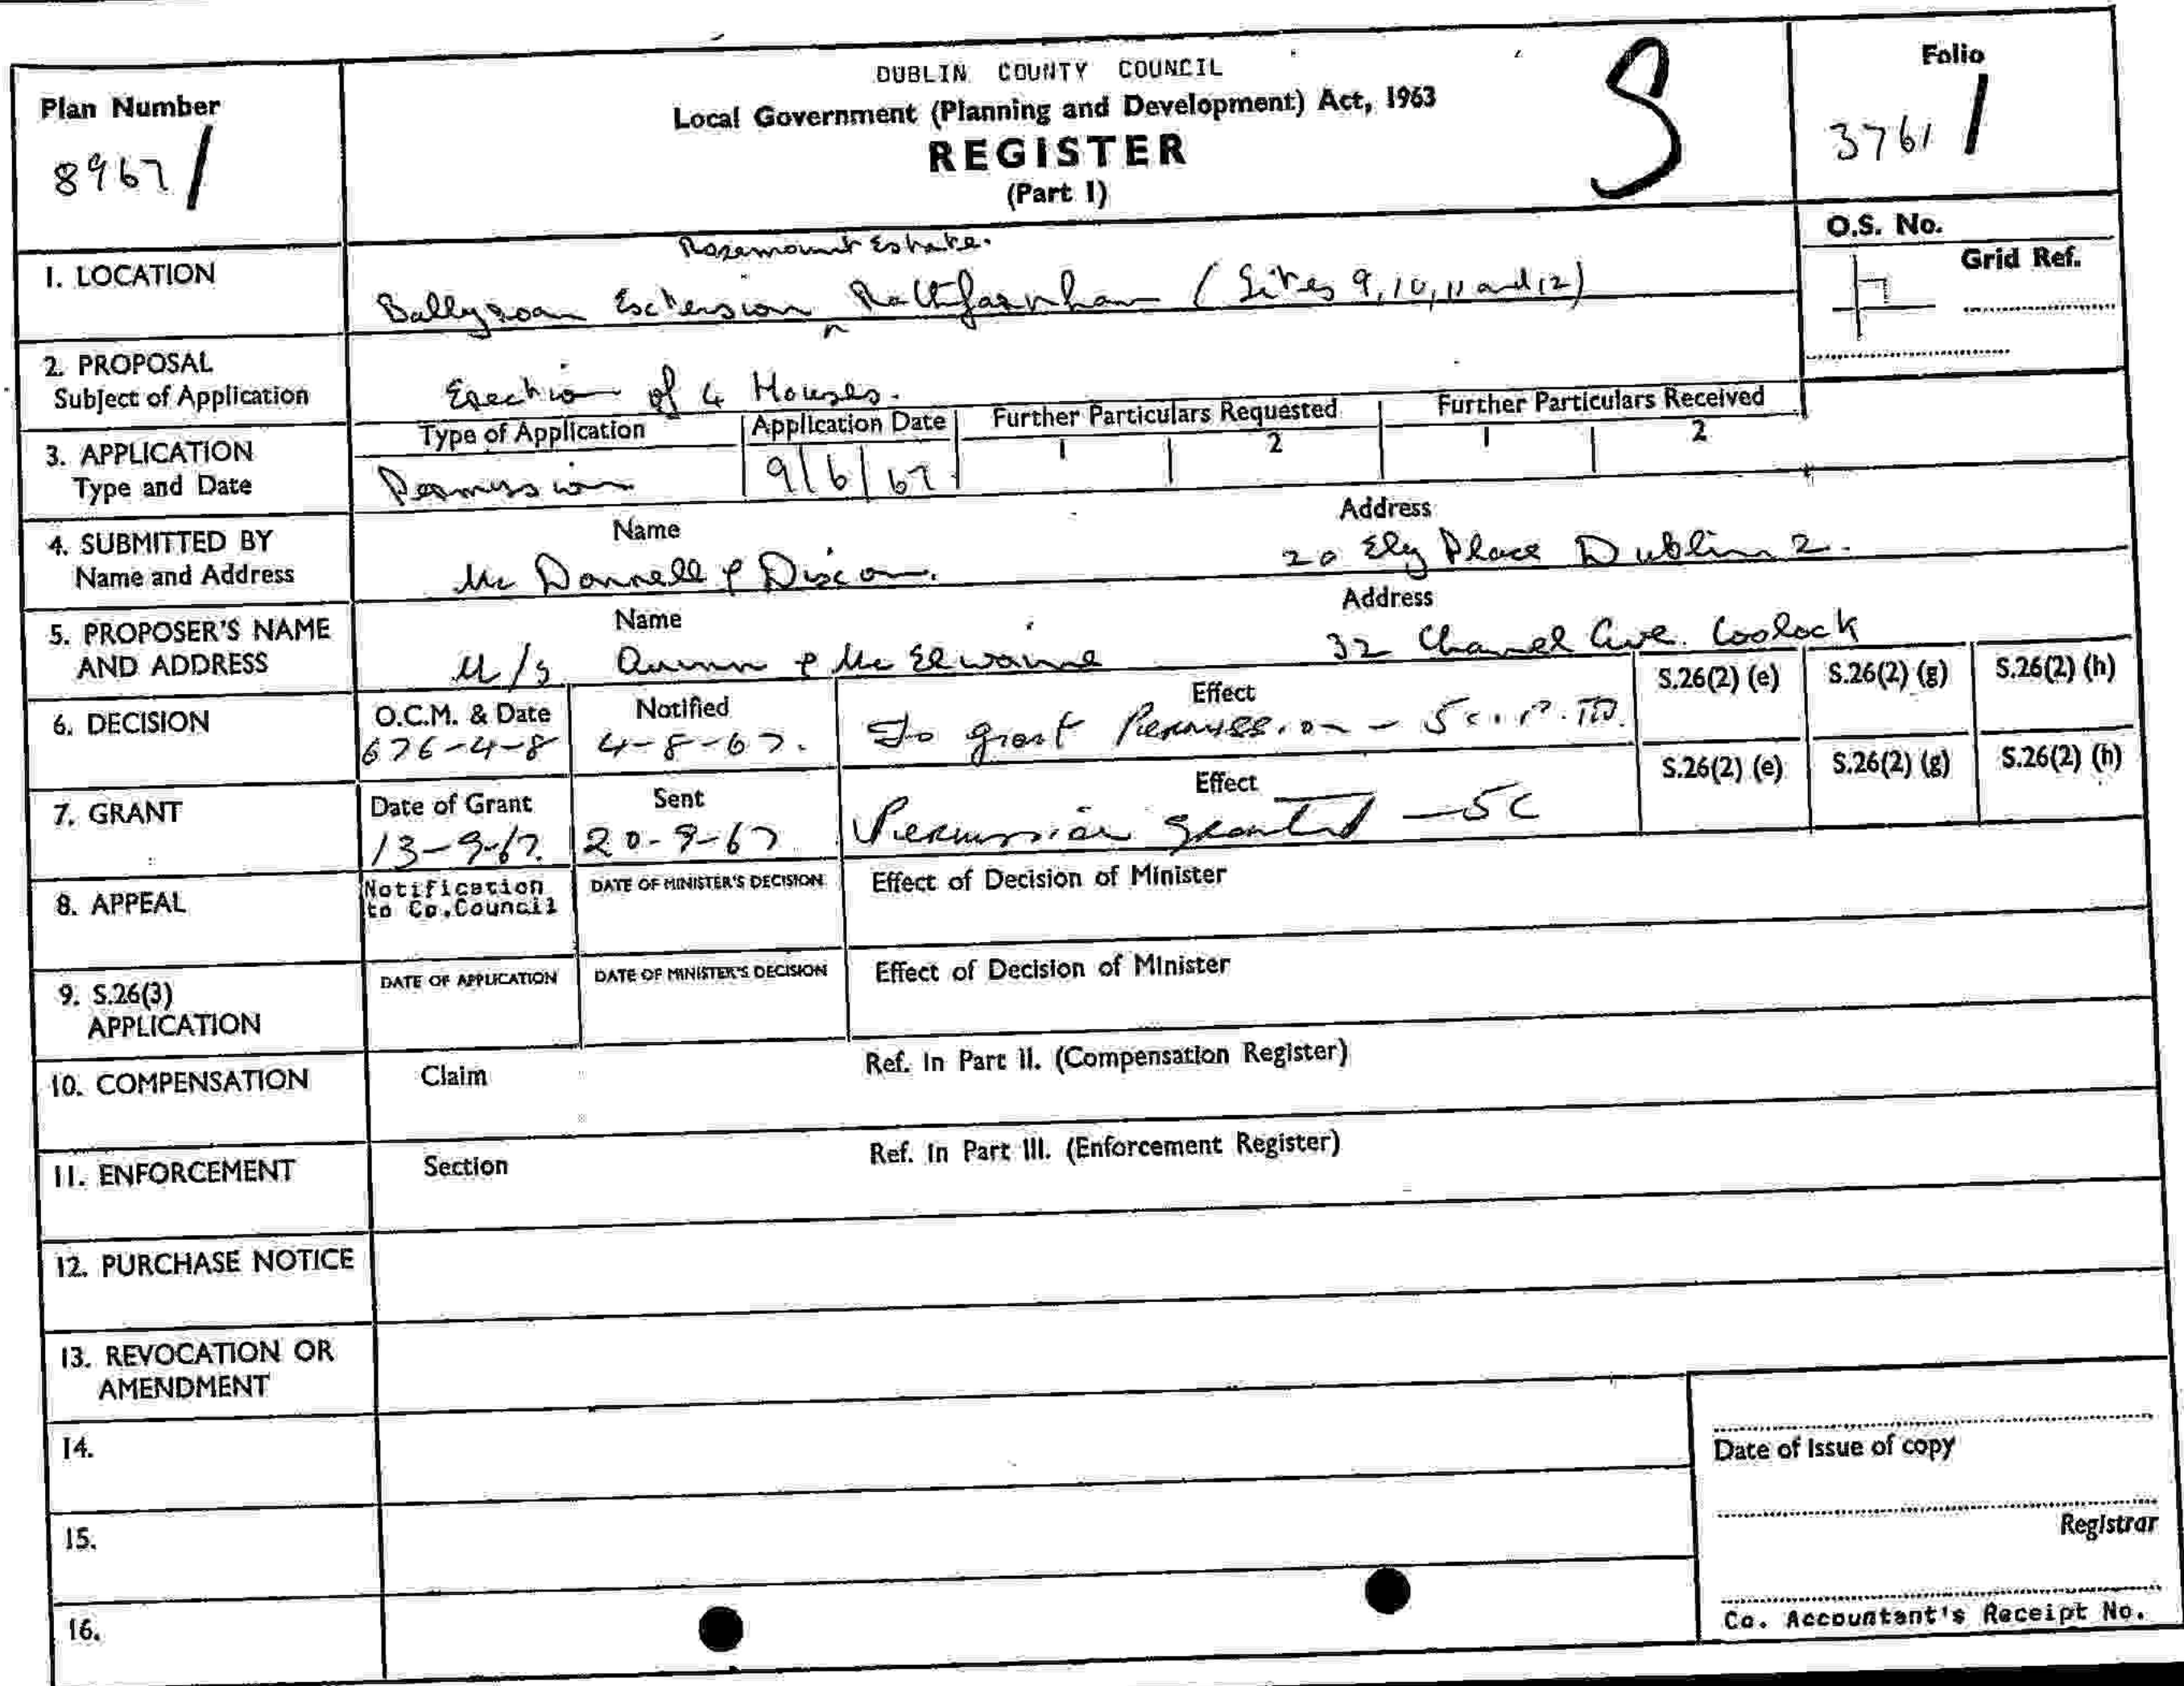 DUBLIN COUNTY COUNCIL
Local Government (Planning and Development) Act, 1963
REGISTER
(Part I)
S
Plan Number
8967/
Folio
3761/
O.S. No.
Grid Ref.
1. LOCATION
Rosemount Estate.
Ballyroan Extension ^ Rathfarnham (Sites 9, 10, 11 and 12)
2. PROPOSAL
Subject of Application
Erection of 4 Houses.
3. APPLICATION
Type and Date
Type of Application
Application Date
Further Particulars Requested
Further Particulars Received
1 2 1 2
Permission 9/6/67
4. SUBMITTED BY
Name and Address
Name Address
Mc Donnell & Dixon. 20 Ely Place Dublin 2.
5. PROPOSER'S NAME
AND ADDRESS
Name Address
M/s Quinn & Mc Elwaine 32 Chanel Ave. Coolock
6. DECISION
O.C.M. & Date Notified Effect S.26(2) (e) S.26(2) (g) S.26(2) (h)
676-4-8 4-8-67. To grant Permission - 5c
7. GRANT
Date of Grant Sent Effect S.26(2) (e) S.26(2) (g) S.26(2) (h)
13-9-67. 20-9-67 Permission granted - 5C
8. APPEAL
Notification
to Co.Council
DATE OF MINISTER'S DECISION
Effect of Decision of Minister
9. S.26(3)
APPLICATION
DATE OF APPLICATION
DATE OF MINISTER'S DECISION
Effect of Decision of Minister
10. COMPENSATION
Claim
Ref. in Part II. (Compensation Register)
11. ENFORCEMENT
Section
Ref. in Part III. (Enforcement Register)
12. PURCHASE NOTICE
13. REVOCATION OR
AMENDMENT
14.
15.
16.
Date of issue of copy
Registrar
Co. Accountant's Receipt No.